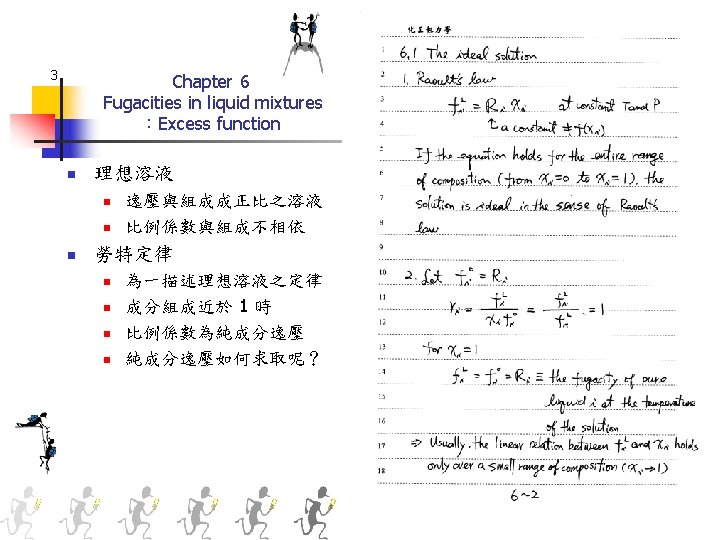 3
Chapter 6
Fugacities in liquid mixtures
：Excess function
理想溶液
逸壓與組成成正比之溶液
比例係數與組成不相依
勞特定律
為一描述理想溶液之定律
成分組成近於 1 時
比例係數為純成分逸壓
純成分逸壓如何求取呢？
化工熱力學
1 6.1 The ideal solution
2 1. Raoult's law
3 fᵢᴸ = Rᵢ xᵢ at constant T and P
4 ↳ a constant ≠ f(xᵢ)
5 If the equation holds for the entire range
6 of composition (from xᵢ=0 to xᵢ=1), the
7 solution is ideal in the sense of Raoult's
8 law
9
10 2. Let fᵢ° = Rᵢ
11 12 γᵢ = fᵢᴸ / xᵢ fᵢ° = fᵢᴸ / fᵢᴸ = 1
13 for xᵢ=1
14 fᵢᴸ = fᵢ° = Rᵢ ≡ the fugacity of pure
15 liquid i at the temperature
of the solution
17 ⇒ Usually, the linear relation between fᵢᴸ and xᵢ holds
18 only over a small range of composition (xᵢ→1)
6~2